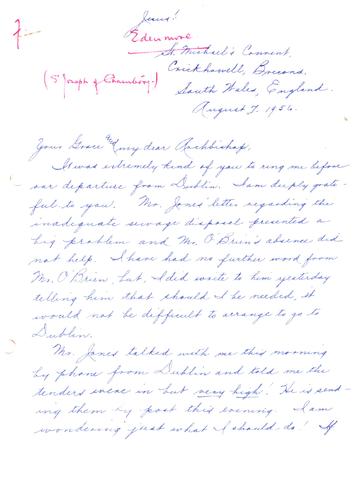 Jesus!
Edenmore
St. Michael's Convent,
(St Joseph of Chambéry)
Crickhowell, Brecond,
South Wales, England.
August 7. 1956.
Your Grace and my dear Archbishop,
It was extremely kind of you to ring me before
our departure from Dublin. I am deeply grate-
ful to you. Mr. Jones' letter regarding the
inadequate sewage disposal presented a
big problem and Mr. O'Brien's absence did
not help. I have had no further word from
Mr. O'Brien, but, I did write to him yesterday
telling him that should I be needed, it
would not be difficult to arrange to go to
Dublin.
Mr. Jones talked with me this morning
by phone from Dublin and told me the
tenders were in but very high! He is send-
ing them by post this evening. I am
wondering just what I should do! If